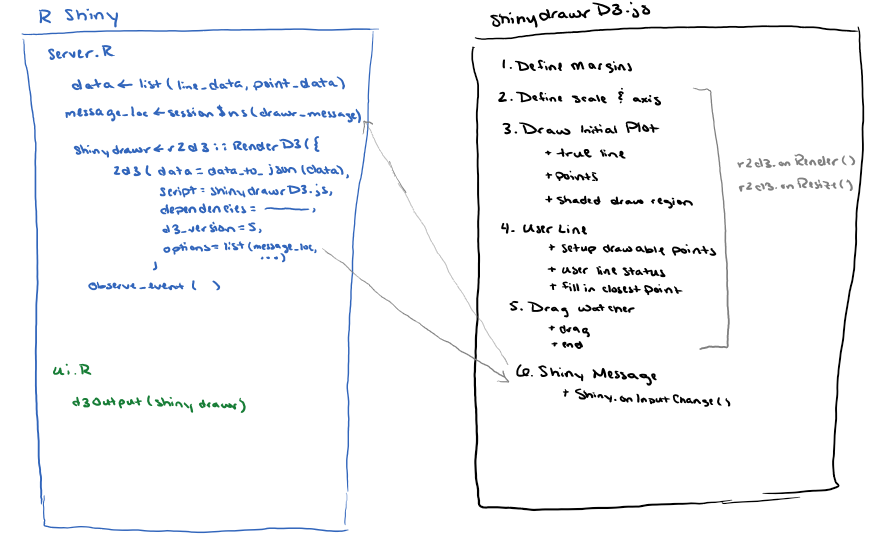 R Shiny
Server.R
data ← list (line_data, point_data)
message_loc ← session$ns(drawr_message)
shinydrawr ← r2d3:: RenderD3({
r2d3( data = data_to_json (data),
script = shinydrawrD3.js,
dependencies = ———,
d3_version = 5,
options = list (message_loc,
...)
)
observe_event ( )
ui.R
d3Output (shinydrawr)
shinydrawrD3.js
1. Define Margins
2. Define scale & axis
3. Draw Initial Plot
+ true line
+ points
+ shaded draw region
4. User Line
+ setup drawable points
+ user line status
+ fill in closest point
5. Drag watcher
+ drag
+ end
6. Shiny Message
+ Shiny.onInputChange()
r2d3.onRender()
r2d3.onResize()